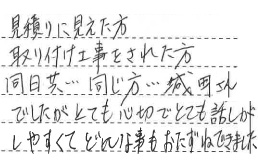 見積りに見えた方
取り付け工事をされた方
同日共…同じ方…城田さん
でしたがとても心切でとても話しが
しやすくてどんな事もおたずねできました